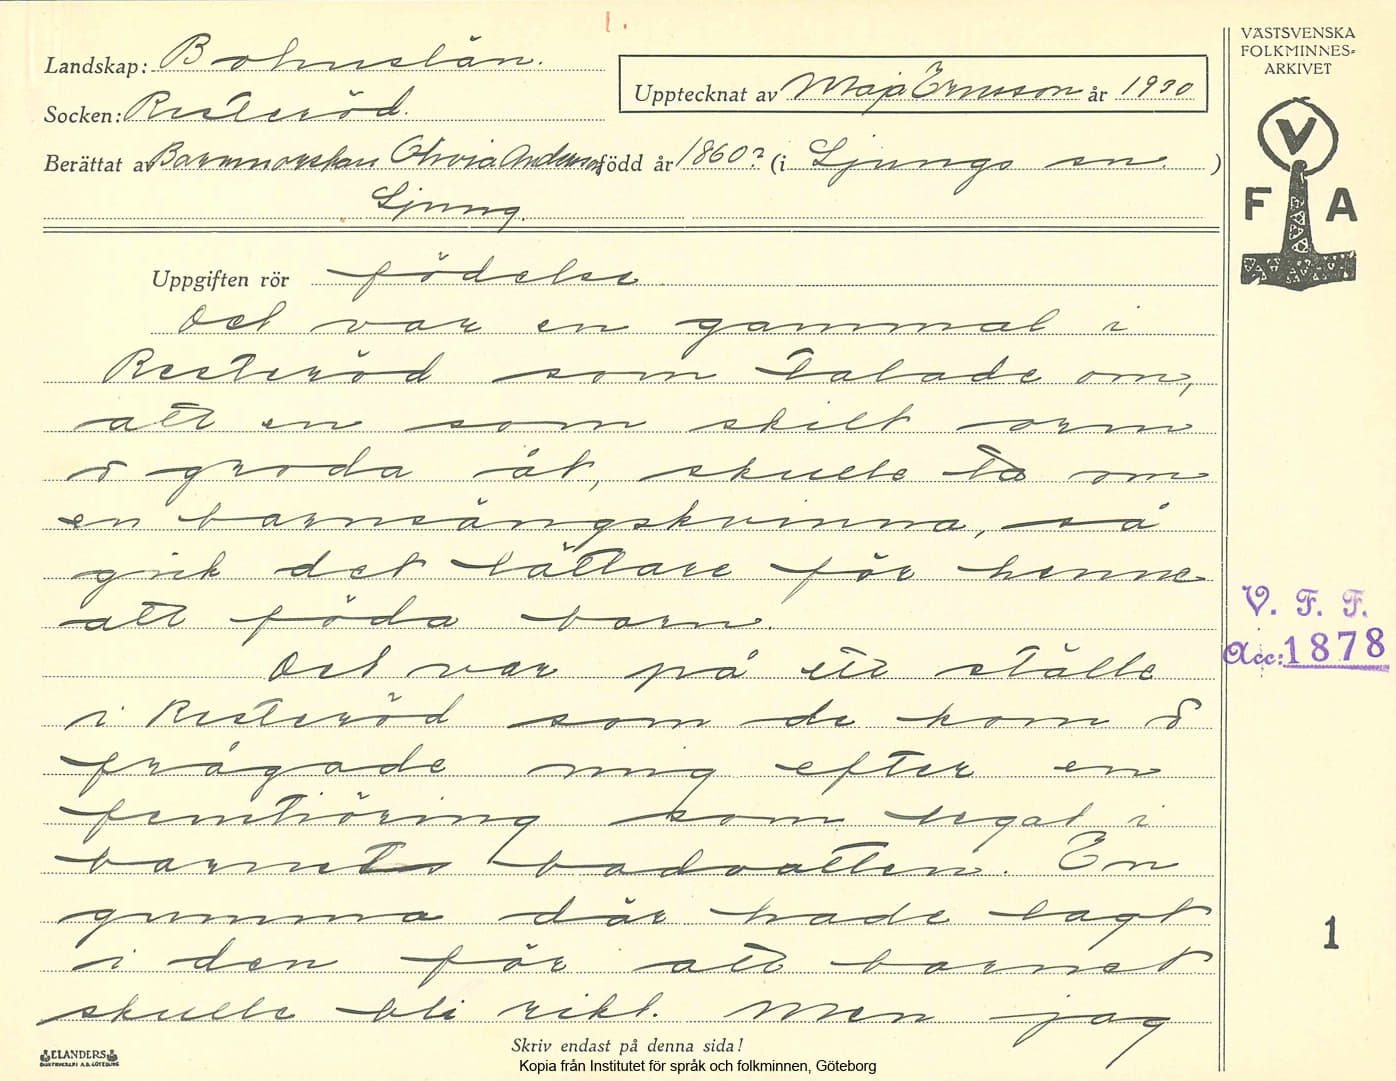 1.
Landskap: Bohuslän.
Socken: Resteröd.
Upptecknat av Maja Ericsson år 1930
Berättat av Barnmorskan Olivia Anderson född år 1860? (i Ljungs sn. )
Ljung.
VÄSTSVENSKA
FOLKMINNES-
ARKIVET
V
F A
Uppgiften rör födelse
Det var en gammal i
Resteröd som talade om,
att en som skilt orm
o groda åt, skulle ta om
en barnsängskvinna, så
gick det lättare för henne
att föda barn.
Det var på ett ställe
i Resteröd som de kom o
frågade mig efter en
femtiöring som legat i
barnets badvatten. En
gumma där hade lagt
i den för att barnet
skulle bli rikt. Men jag
V. F. F.
Acc: 1878
1
ELANDERS
Skriv endast på denna sida!
Kopia från Institutet för språk och folkminnen, Göteborg